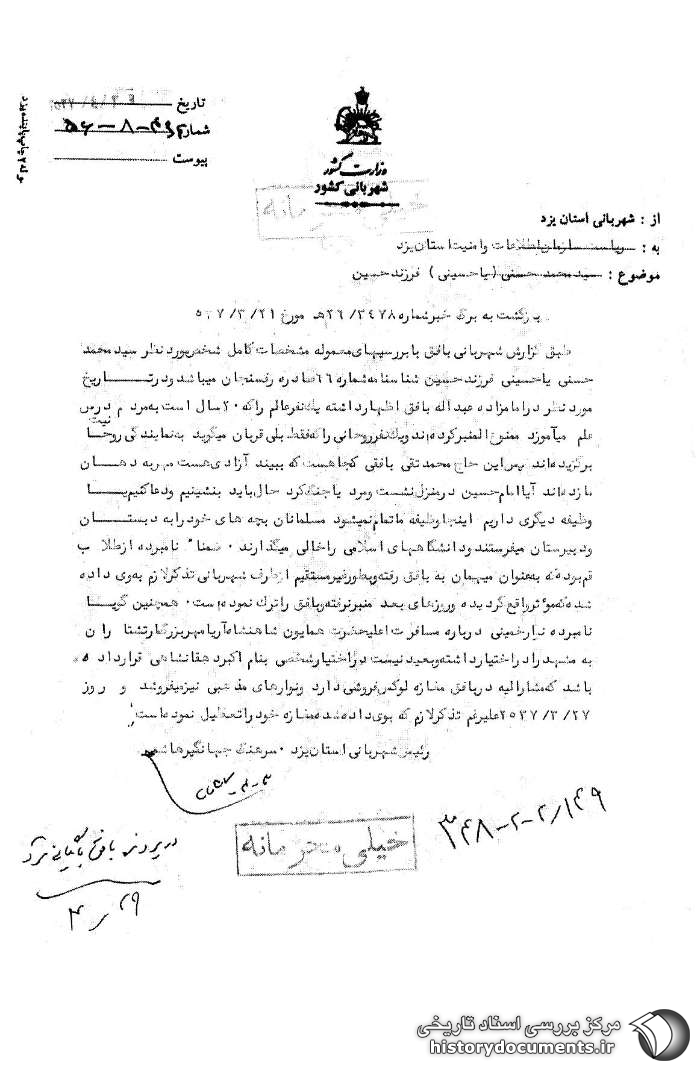 تاریخ
شماره ۵۶-۸-
پیوست
وزارت کشور
شهربانی کشور
خیلی محرمانه
از : شهربانی استان یزد
به : ریاست سازمان اطلاعات و امنیت استان یزد
موضوع : سید محمد حسنی (یا حسینی) فرزند حسین
بازگشت به برگ خبر شماره ۲۶/۳۴۷۸ه‍ مورخ ۵۳۷/۳/۲۱
طبق گزارش شهربانی بافق با بررسیهای معموله مشخصات کامل شخص مورد نظر سید محمد
حسنی یا حسینی فرزند حسین شناسنامه شماره ۶۶ صادره رفسنجان میباشد و در تاریخ
مورد نظر در امامزاده عبداله بافق اظهار داشته یک نفر عالم را که ۲۰ سال است به مردم درس
علم میآموزد ممنوع المنبر کرده‌اند و یک نفر روحانی را که فقط بلی قربان میگوید به نمایندگی روحانیت
برگزیده‌اند پس این حاج محمد تقی بافقی کجا هست که ببیند آزادی هست مهر به دهان
ما زده‌اند آیا امام حسین در منزل نشست و مرد یا جنگ کرد حال باید بنشینیم و دعا کنیم یا
وظیفه دیگری داریم اینجا وظیفه ما تمام نمیشود مسلمانان بچه های خود را به دبستان
و دبیرستان میفرستند و دانشگاههای اسلامی را خالی میگذارند . ضمناً نامبرده از طلاب
قم بوده که به عنوان میهمان به بافق رفته و بطور غیر مستقیم از طرف شهربانی تذکر لازم به وی داده
شده که مؤثر واقع گردیده و روزهای بعد منبر نرفته و بافق را ترک نموده است . همچنین گویا
نامبرده نوار خمینی درباره مسافرت اعلیحضرت همایون شاهنشاه آریامهر بزرگ ارتشتاران
به مشهد را در اختیار داشته و بعید نیست در اختیار شخصی بنام اکبر دهقانشاهی قرار داده
باشد که مشارالیه در بافق مغازه لوکس فروشی دارد و نوارهای مذهبی نیز میفروشد و روز
۲۵۳۷/۳/۲۷ علیرغم تذکر لازم که بوی داده شده مغازه خود را تعطیل نموده است
رئیس شهربانی استان یزد . سرهنگ جهانگیر هاشمی
خیلی محرمانه
در پرونده بافق بایگانی شود
۴ ر ۲۹
مرکز بررسی اسناد تاریخی
historydocuments.ir